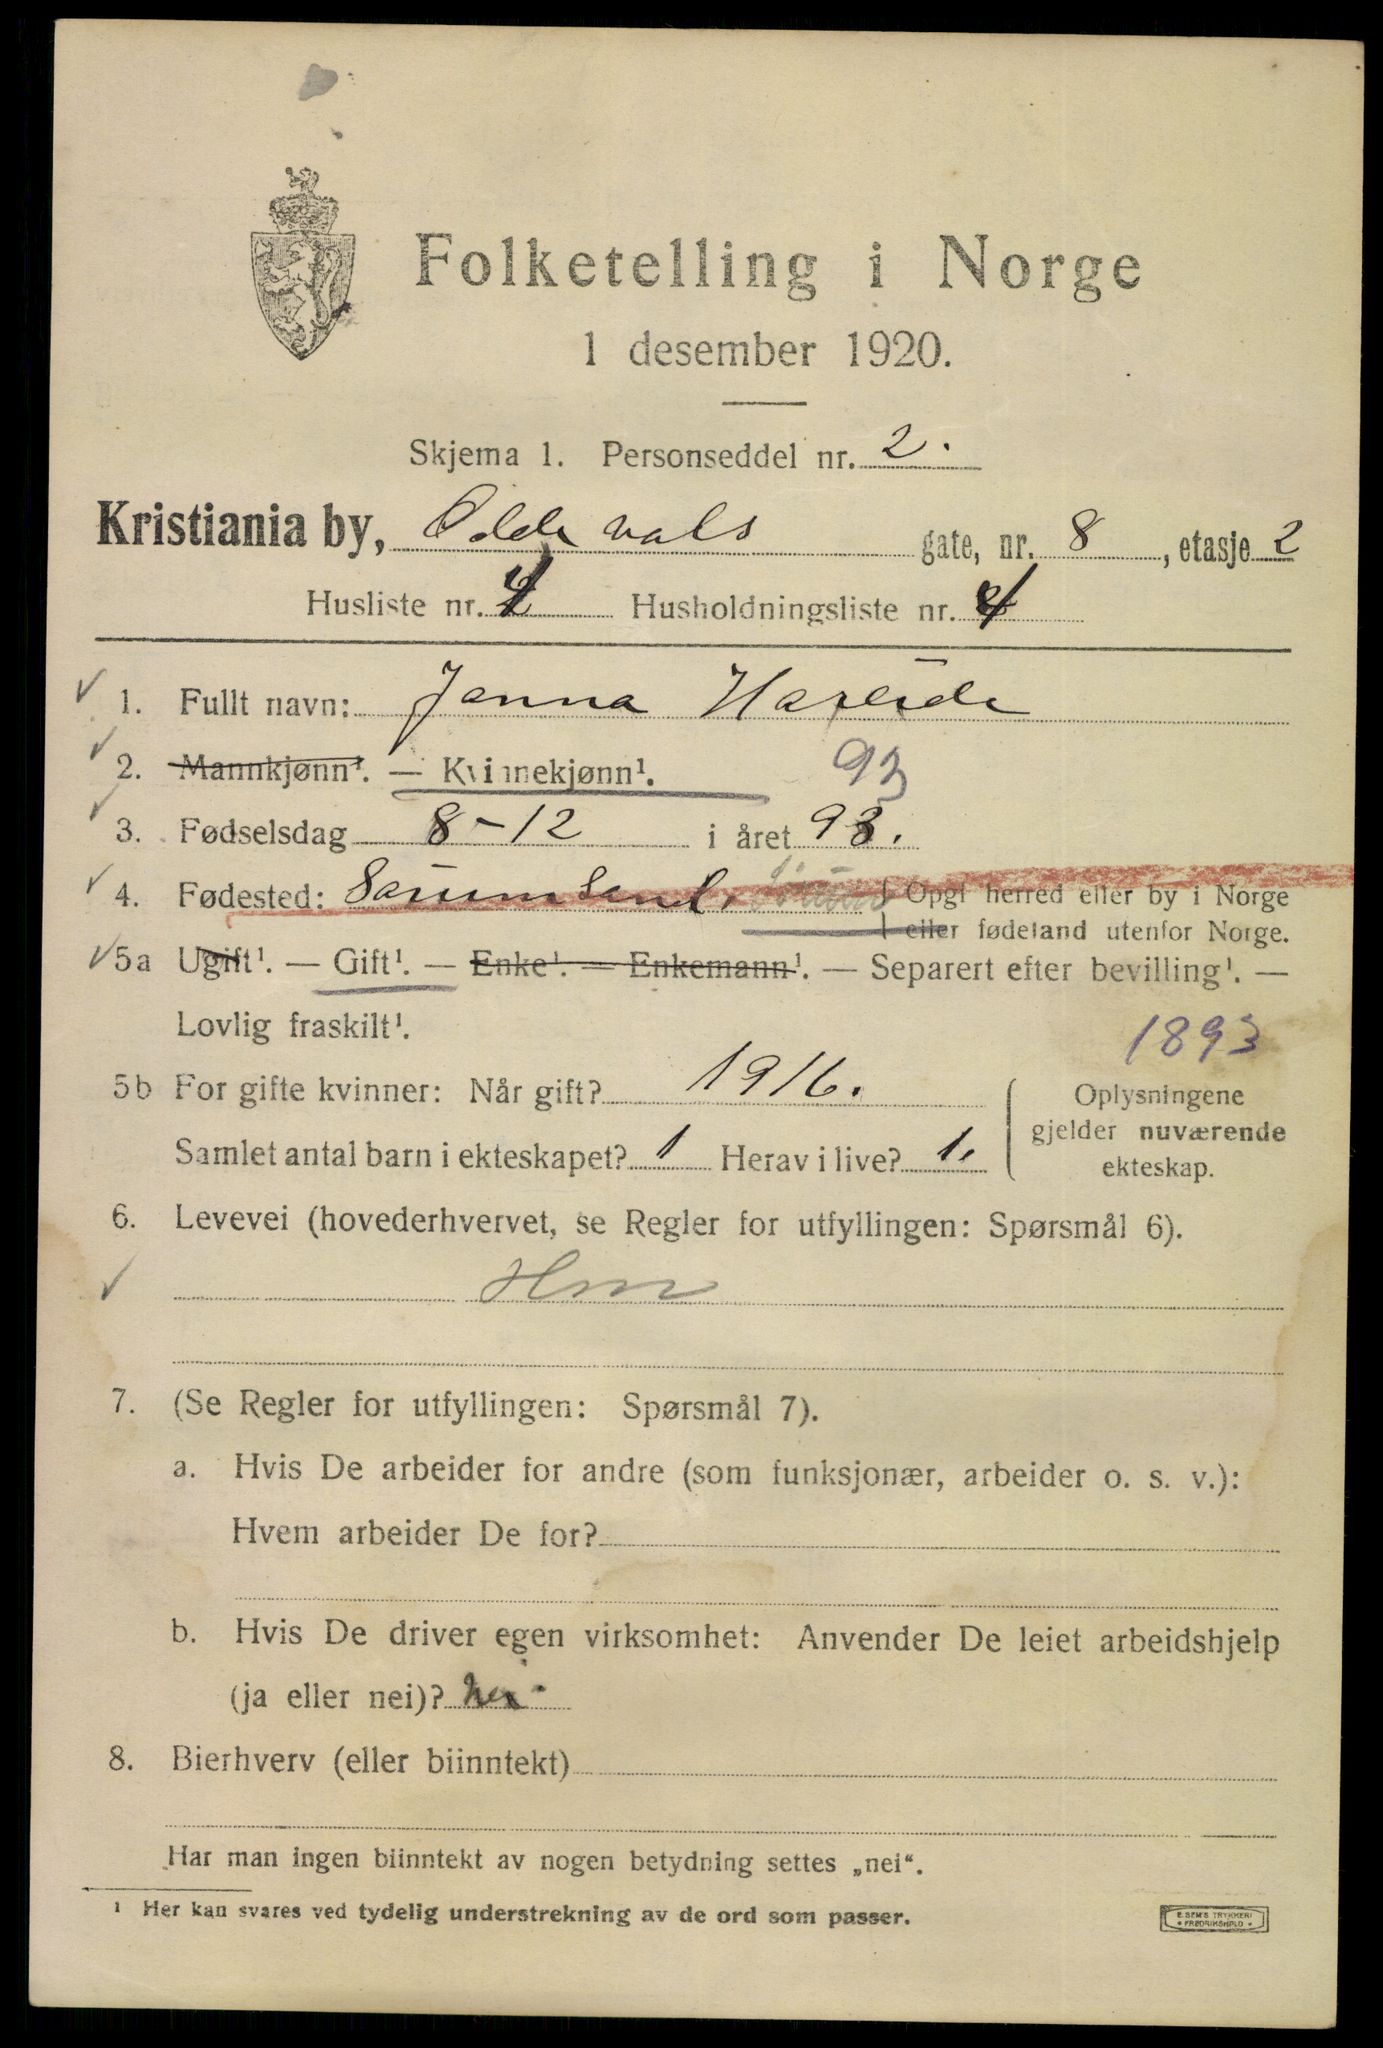 Folketelling i Norge
1 desember 1920.
Skjema 1. Personseddel nr. 2.
Kristiania by, Oddevals gate, nr. 8, etasje 2
Husliste nr. 4 Husholdningsliste nr. 4
1. Fullt navn: Janna Hareide
2. Mannkjønn¹. — Kvinnekjønn¹. 93
3. Fødselsdag 8-12 i året 93.
4. Fødested: Sørumsand. Sørum Opgi herred eller by i Norge
eller fødeland utenfor Norge.
5a Ugift¹. — Gift¹. — Enke¹. — Enkemann¹. — Separert efter bevilling¹. —
Lovlig fraskilt¹. 1893
5b For gifte kvinner: Når gift? 1916. Oplysningene
gjelder nuværende
Samlet antal barn i ekteskapet? 1 Herav i live? 1. ekteskap.
6. Levevei (hovederhvervet, se Regler for utfyllingen: Spørsmål 6).
Hm
7. (Se Regler for utfyllingen: Spørsmål 7).
a. Hvis De arbeider for andre (som funksjonær, arbeider o. s. v.):
Hvem arbeider De for?
b. Hvis De driver egen virksomhet: Anvender De leiet arbeidshjelp
(ja eller nei)? nei.
8. Bierhverv (eller biinntekt)
Har man ingen biinntekt av nogen betydning settes „nei“.
¹ Her kan svares ved tydelig understrekning av de ord som passer.
E. SEM'S TRYKKERI
FREDRIKSHALD